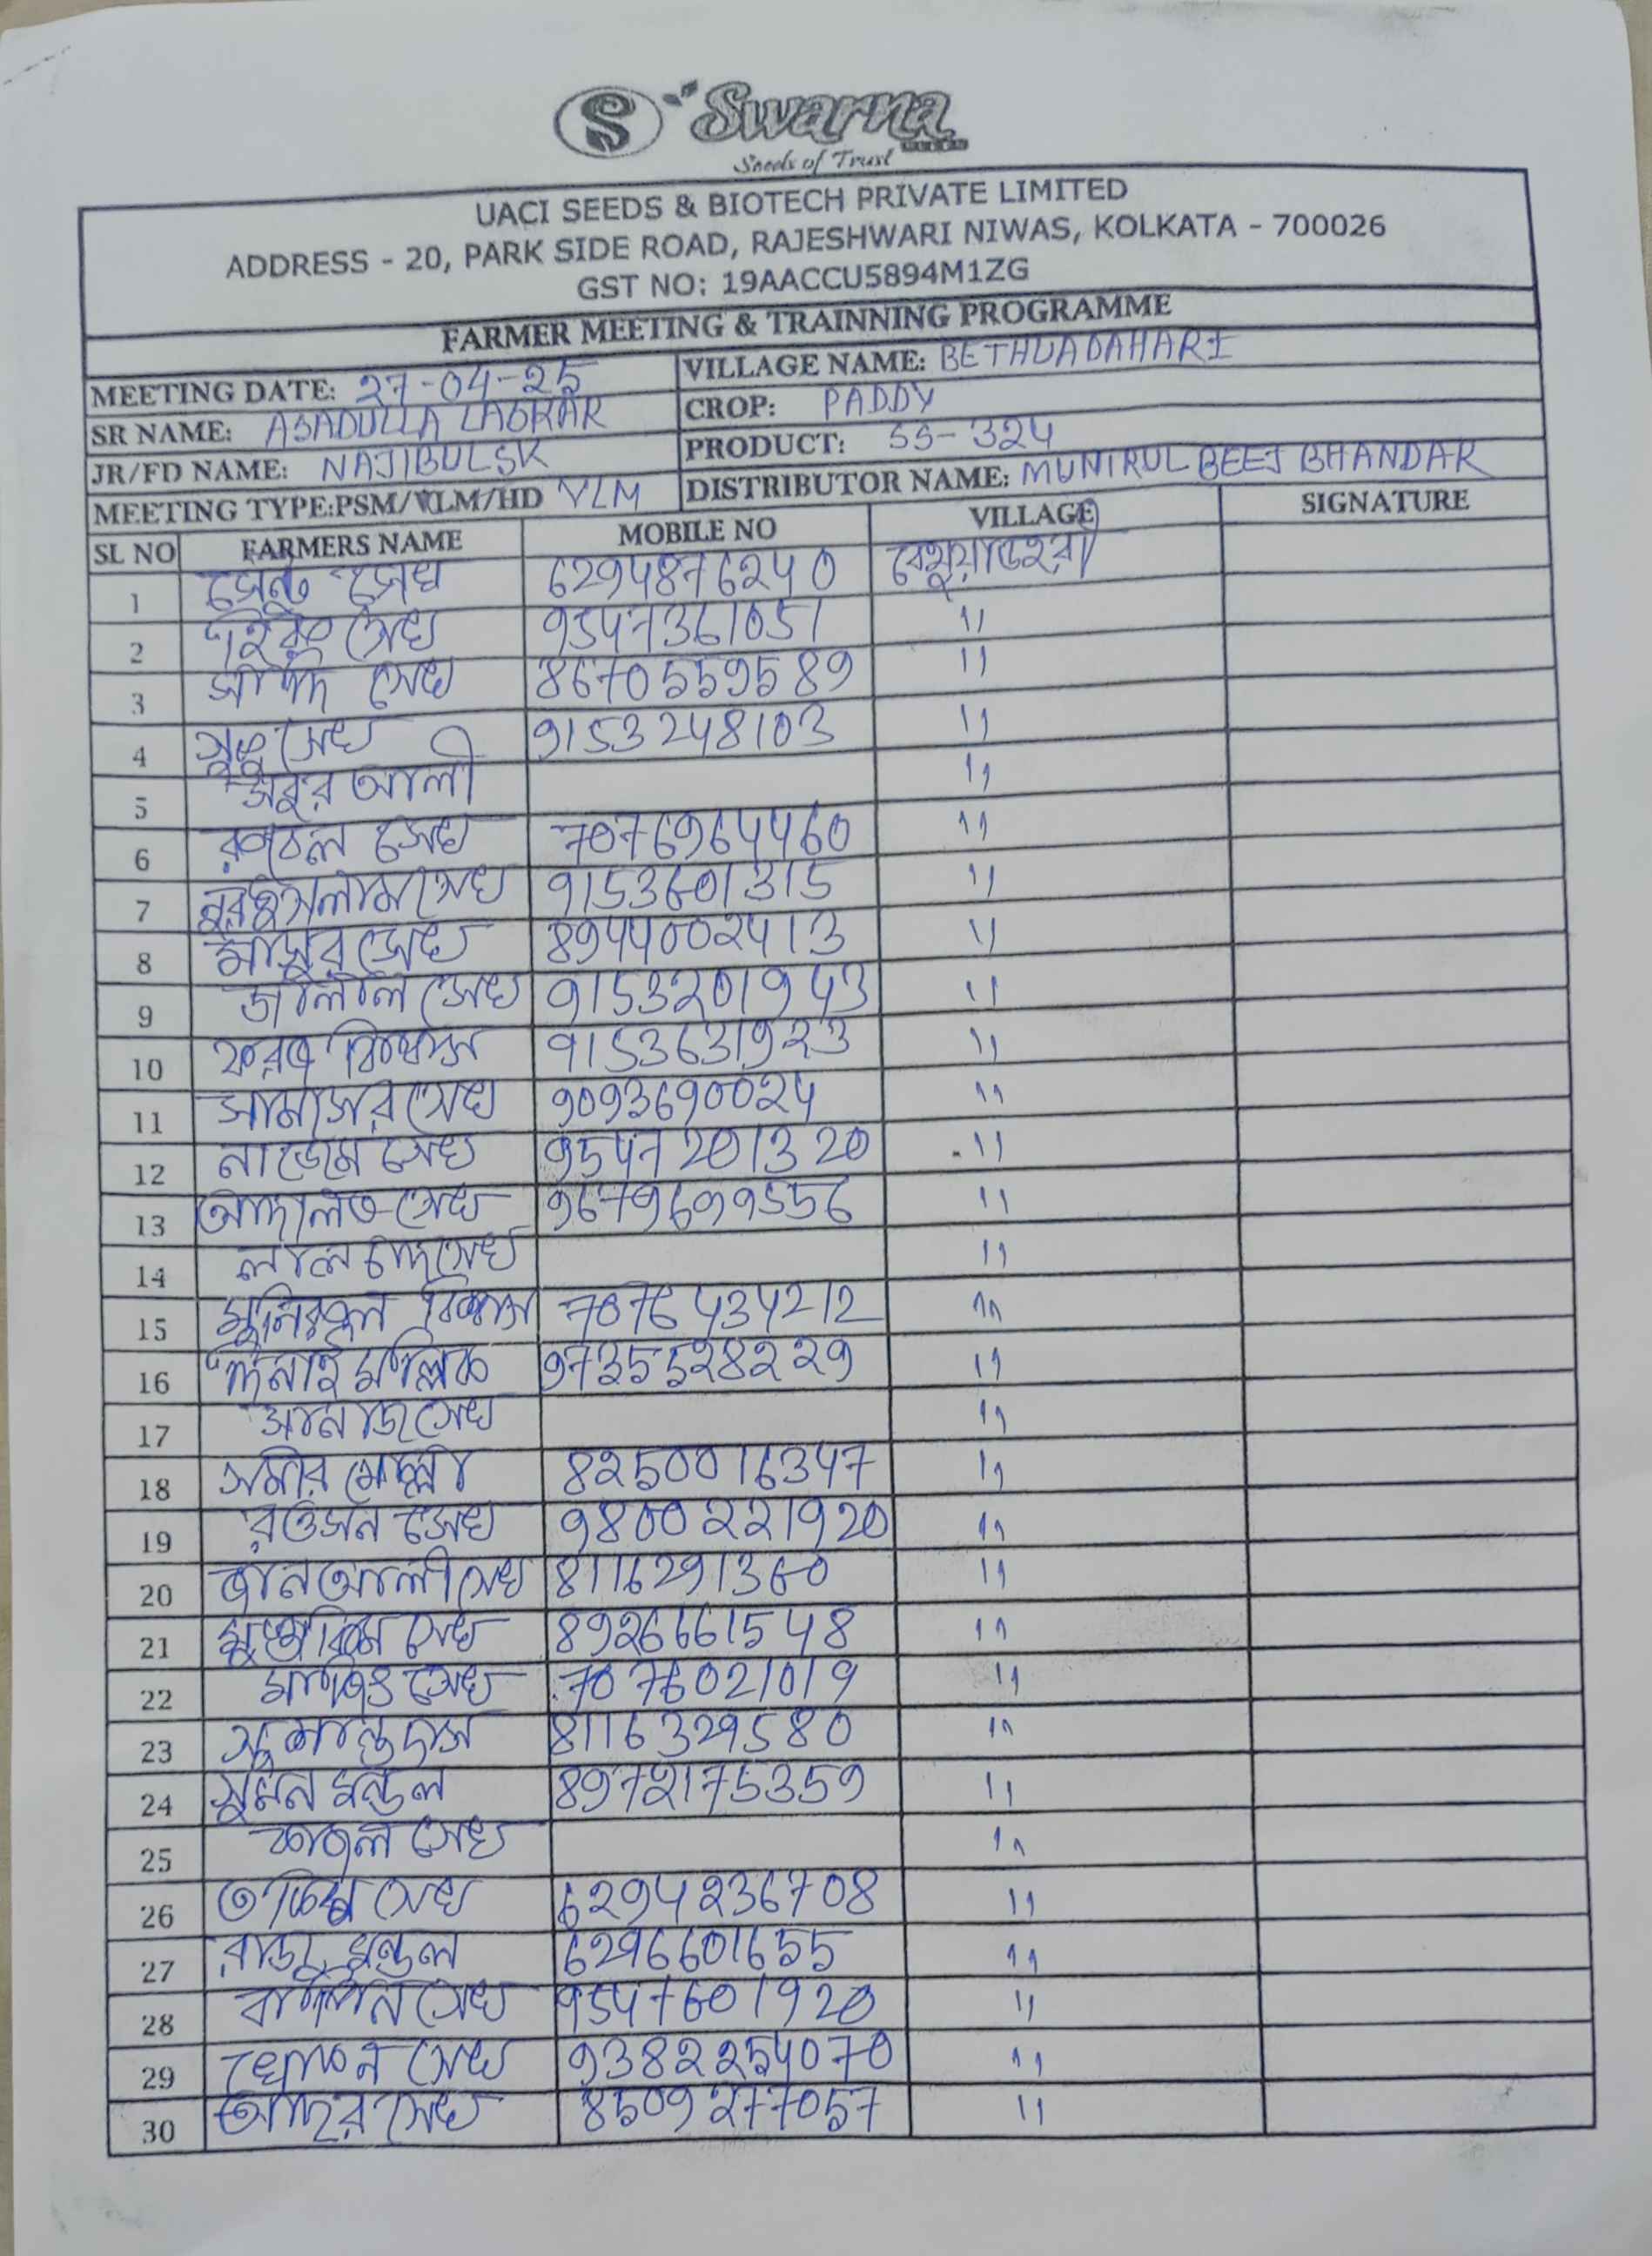 S Swarna
Seeds of Trust
UACI SEEDS & BIOTECH PRIVATE LIMITED
ADDRESS - 20, PARK SIDE ROAD, RAJESHWARI NIWAS, KOLKATA - 700026
GST NO: 19AACCU5894M1ZG
FARMER MEETING & TRAINNING PROGRAMME
MEETING DATE: 27-04-25 VILLAGE NAME: BETHUADAHARI
SR NAME: ASADULLA LASKAR CROP: PADDY
JR/FD NAME: NAJIBUL SK PRODUCT: SS-324
MEETING TYPE:PSM/VLM/HD VLM DISTRIBUTOR NAME: MUNIRUL BEEJ BHANDAR
SL NO FARMERS NAME MOBILE NO VILLAGE SIGNATURE
1 সেন্টু সেখ 6294876240 বেথুয়াডহরী
2 সেখ 9547361051 "
3 সেখ 8670559589 "
4 সেখ 9153248103 "
5 সবুর আলী "
6 সেখ 7076964460 "
7 নুরইসলাম সেখ 9153601315 "
8 মাসুর সেখ 8944002413 "
9 জালাল সেখ 9153201943 "
10 বিশ্বাস 9153631923 "
11 সামসের সেখ 9093690024 "
12 নাজেম সেখ 9547201320 "
13 আদালত সেখ 9679699556 "
14 লাল চাঁদ সেখ "
15 মুনিরুল বিশ্বাস 7076434212 "
16 মল্লিক 9735528229 "
17 সেখ "
18 সমীর মোল্লা 8250016347 "
19 রওসন সেখ 9800221920 "
20 জানআলী সেখ 8116291360 "
21 সেখ 8926661548 "
22 সেখ 7076021019 "
23 সুশান্ত দাস 8116329580 "
24 সুমন মন্ডল 8972175359 "
25 কাজল সেখ "
26 সেখ 6294236708 "
27 রাজু মন্ডল 6296601655 "
28 সেখ 9547601920 "
29 খোকন সেখ 9382254070 "
30 সেখ 8509277057 "